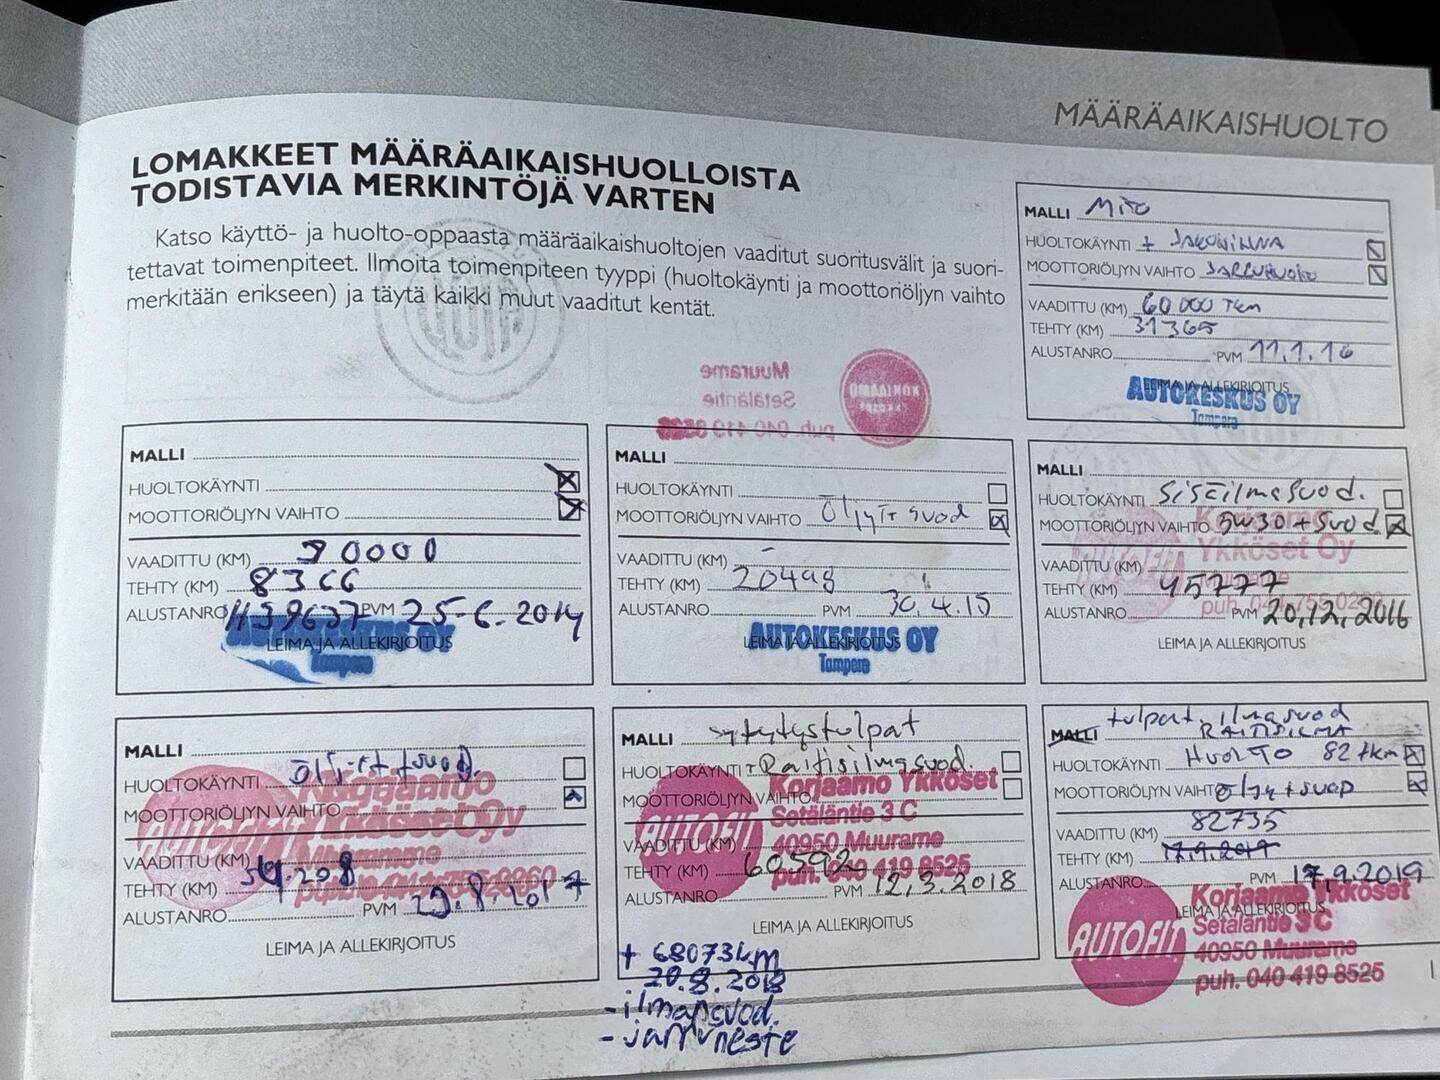 MÄÄRÄAIKAISHUOLTO
LOMAKKEET MÄÄRÄAIKAISHUOLLOISTA
TODISTAVIA MERKINTÖJÄ VARTEN
Katso käyttö- ja huolto-oppaasta määräaikaishuoltojen vaaditut suoritusvälit ja suori-
tettavat toimenpiteet. Ilmoita toimenpiteen tyyppi (huoltokäynti ja moottoriöljyn vaihto
merkitään erikseen) ja täytä kaikki muut vaaditut kentät.
MALLI MiTo
HUOLTOKÄYNTI +
MOOTTORIÖLJYN VAIHTO
VAADITTU (KM) 60 000 TKM
TEHTY (KM) 31365
ALUSTANRO PVM 11.1.16
LEIMA JA ALLEKIRJOITUS
AUTOKESKUS OY
Tampere
Muurame
Setäläntie
puh. 040 419
MALLI
HUOLTOKÄYNTI
MOOTTORIÖLJYN VAIHTO
VAADITTU (KM) 30000
TEHTY (KM) 8366
ALUSTANRO PVM 25-6.2014
LEIMA JA ALLEKIRJOITUS
Tampere
MALLI
HUOLTOKÄYNTI
MOOTTORIÖLJYN VAIHTO Öljyt+ suod
VAADITTU (KM) -
TEHTY (KM) 20498
ALUSTANRO PVM 30.4.15
LEIMA JA ALLEKIRJOITUS
AUTOKESKUS OY
Tampere
MALLI
HUOLTOKÄYNTI Sisäilmasuod.
MOOTTORIÖLJYN VAIHTO 5W30 + Suod.
Korjaamo
Ykköset Oy
VAADITTU (KM)
TEHTY (KM) 45777
ALUSTANRO PVM 20,12,2016
LEIMA JA ALLEKIRJOITUS
MALLI
HUOLTOKÄYNTI öljyt + suod.
MOOTTORIÖLJYN VAIHTO
AUTOFIT
Ykköset Oy
Muurame
VAADITTU (KM)
TEHTY (KM)
ALUSTANRO PVM 29.8.2017
LEIMA JA ALLEKIRJOITUS
MALLI sytytystulpat
HUOLTOKÄYNTI + Raitisilmasuod.
MOOTTORIÖLJYN VAIHTO
AUTOFIT
Korjaamo Ykköset
Setäläntie 3 C
40950 Muurame
puh. 040 419 8525
VAADITTU (KM)
TEHTY (KM) 60592
ALUSTANRO PVM 12,3.2018
LEIMA JA ALLEKIRJOITUS
+ 68073km
20.8.2018
- ilmansuod.
- jarruneste
MALLI tulpat, ilmasuod
RAITISILMA
HUOLTOKÄYNTI HUOLTO 82 tkm
MOOTTORIÖLJYN VAIHTO öljy + suod
VAADITTU (KM) 82735
TEHTY (KM) 17.9.2019
ALUSTANRO PVM 17,9.2019
LEIMA JA ALLEKIRJOITUS
AUTOFIT
Korjaamo Ykköset
Setäläntie 3 C
40950 Muurame
puh. 040 419 8525